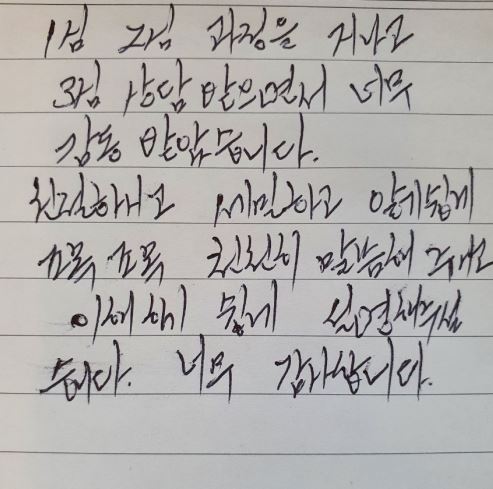 1심 2심 과정을 지나고
3심 상담 받으면서 너무
감동 받았습니다.
친절하시고 세밀하고 알기쉽게
조목 조목 천천히 말씀해 주시고
이해하기 쉽게 설명해주십
니다. 너무 감사합니다.